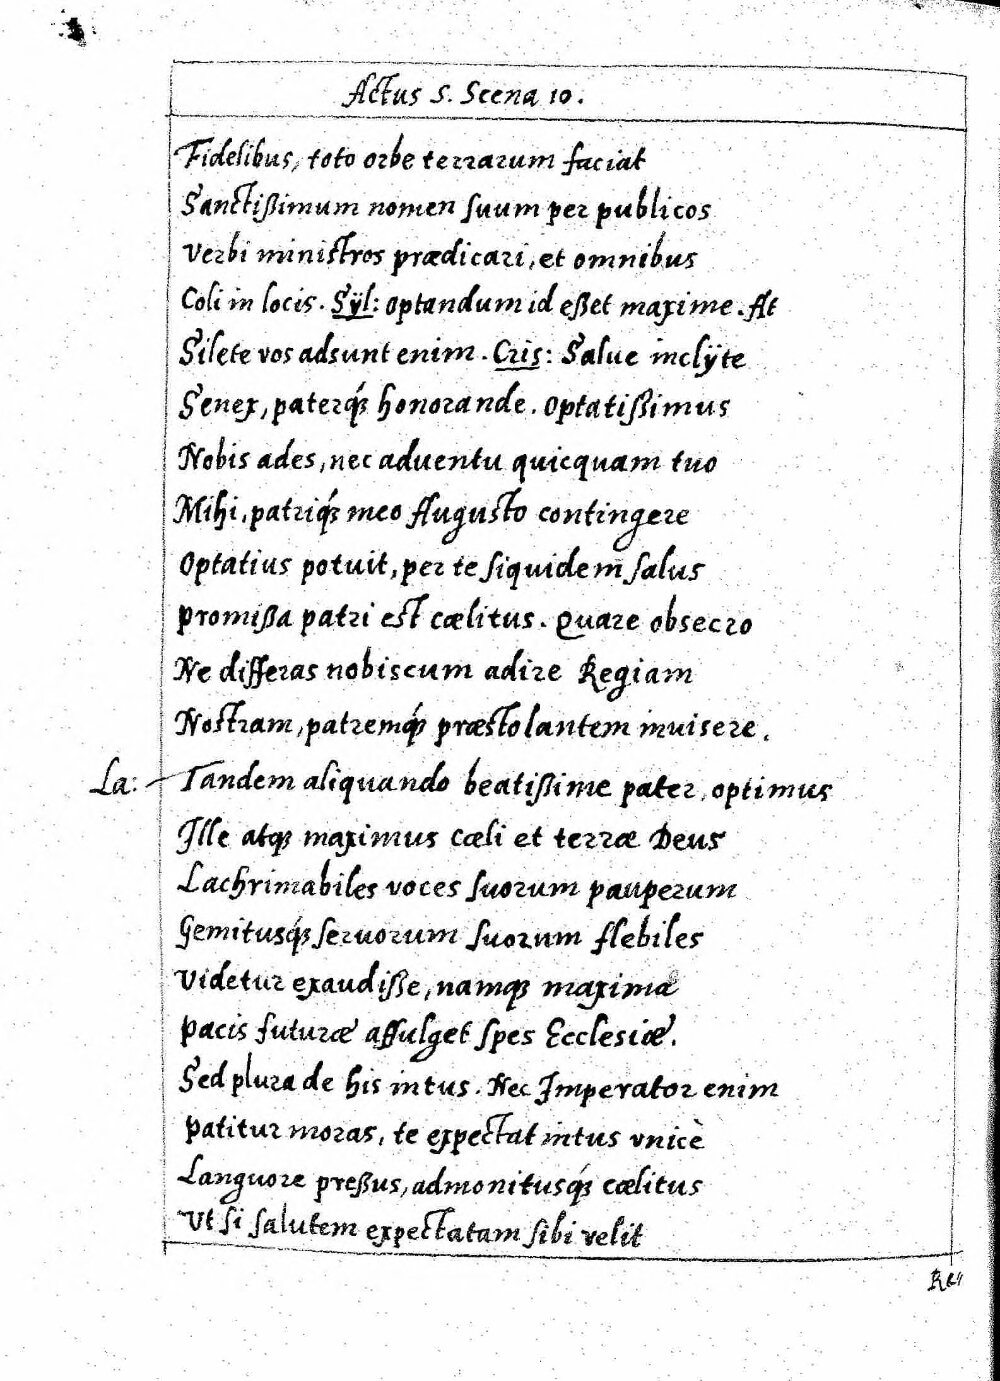 Actus 5. Scena 10.
Fidelibus, toto orbe terrarum faciat
Sanctißimum nomen ſuum per publicos
Verbi ministros prædicari, et omnibus
Coli in locis. Sÿl: Optandum id eßet maxime. At
Silete vos adsunt enim. Cris: Salue inclÿte
Senex, paterq́; honorande. Optatißimus
Nobis ades, nec aduentu quicquam tuo
Mihi, patriq́; meo Augusto contingere
Optatius potuit, per te ſiquidem ſalus
Promißa patri est cælitus. Quare obsecro
Ne differas nobiscum adire Regiam
Nostram, patremq́; præstolantem inuisere.
La: Tandem aliquando beatißime pater, optimus
Ille atq; maximus cæli et terræ Deus
Lachrimabiles voces ſuorum pauperum
Gemitusq́; ſeruorum ſuorum flebiles
Videtur exaudiſße, namq; maxima
Pacis futuræ affulget ſpes Ecclesiæ.
Sed plura de his intus. Nec Imperator enim
Patitur moras, te expectat intus vnicè
Languore preßus, admonitusq́; cælitus
Vt ſi ſalutem expectatam ſibi velit